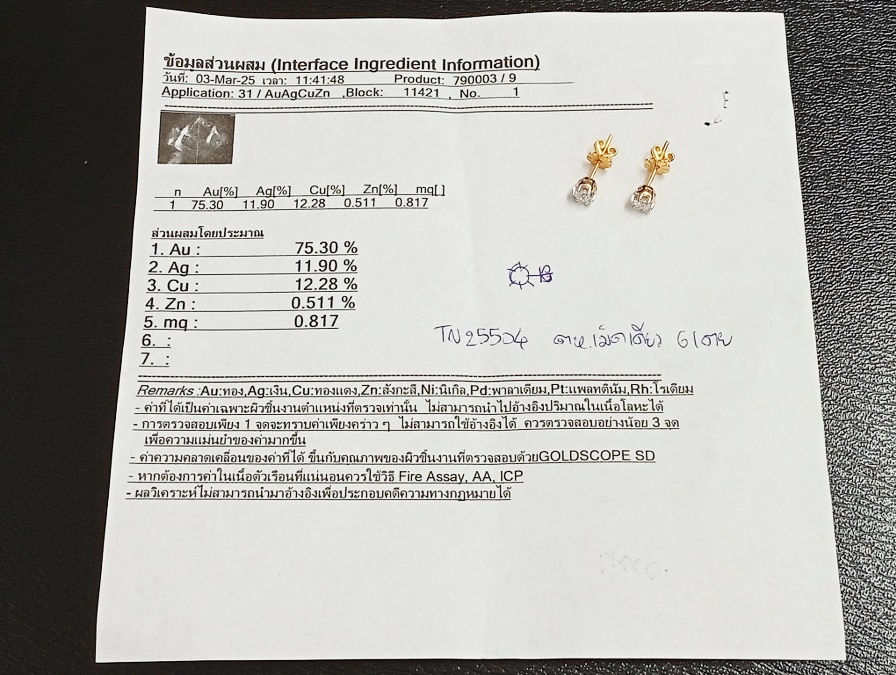 ข้อมูลส่วนผสม (Interface Ingredient Information)
วันที่: 03-Mar-25 เวลา: 11:41:48 Product: 790003 / 9
Application: 31 / AuAgCuZn ,Block: 11421 , No. 1
n Au[%] Ag[%] Cu[%] Zn[%] mq[ ]
1 75.30 11.90 12.28 0.511 0.817
ส่วนผสมโดยประมาณ
1. Au : 75.30 %
2. Ag : 11.90 %
3. Cu : 12.28 %
4. Zn : 0.511 %
5. mq : 0.817
6. :
7. :
TN25504 ตห.เม็ดเดียว
Remarks :Au:ทอง,Ag:เงิน,Cu:ทองแดง,Zn:สังกะสี,Ni:นิเกิล,Pd:พาลาเดียม,Pt:แพลทตินัม,Rh:โรเดียม
- ค่าที่ได้เป็นค่าเฉพาะผิวชิ้นงานตำแหน่งที่ตรวจเท่านั้น ไม่สามารถนำไปอ้างอิงปริมาณในเนื้อโลหะได้
- การตรวจสอบเพียง 1 จุดจะทราบค่าเพียงคร่าว ๆ ไม่สามารถใช้อ้างอิงได้ ควรตรวจสอบอย่างน้อย 3 จุด
เพื่อความแม่นยำของค่ามากขึ้น
- ค่าความคลาดเคลื่อนของค่าที่ได้ ขึ้นกับคุณภาพของผิวชิ้นงานที่ตรวจสอบด้วยGOLDSCOPE SD
- หากต้องการค่าในเนื้อตัวเรือนที่แน่นอนควรใช้วิธี Fire Assay, AA, ICP
- ผลวิเคราะห์ไม่สามารถนำมาอ้างอิงเพื่อประกอบคดีความทางกฎหมายได้